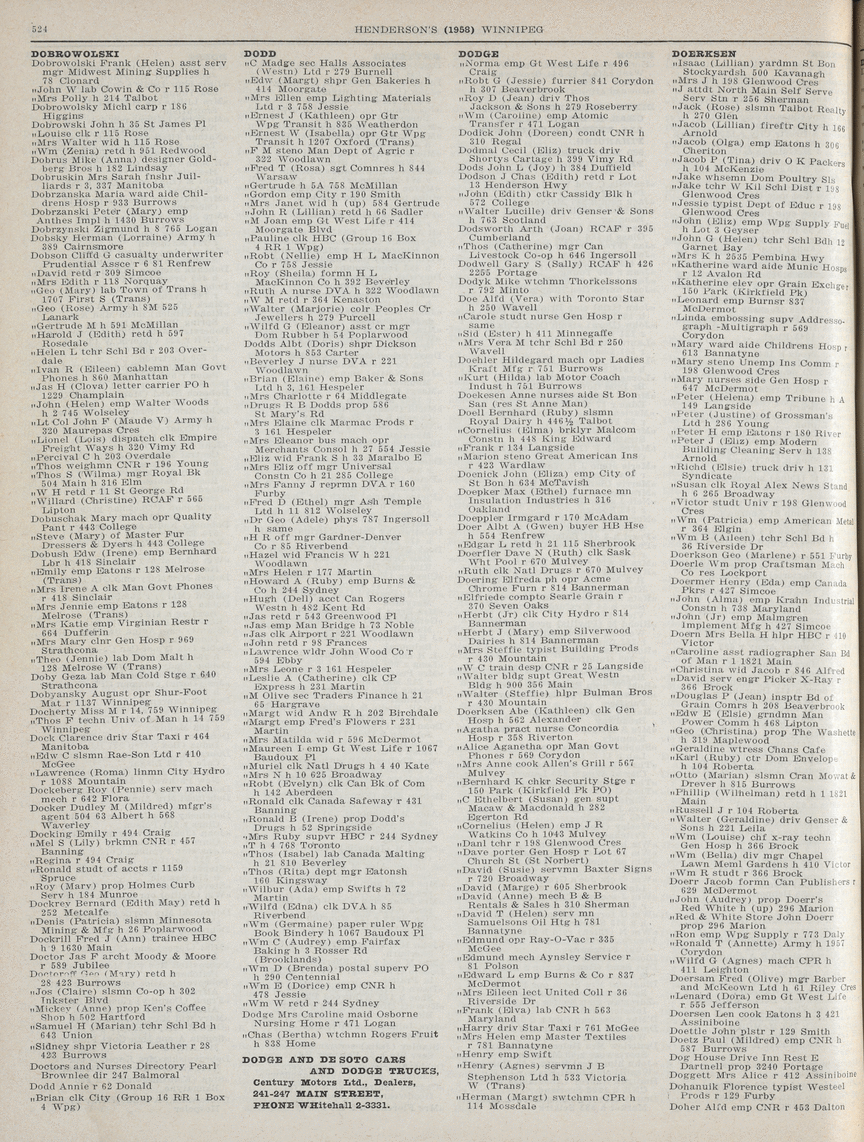 524
HENDERSON'S (1958) WINNIPEG
DOBROWOLSKI
Dobrowolski Frank (Helen) asst serv
mgr Midwest Mining Supplies h
78 Clonard
„John W lab Cowin & Co r 115 Rose
„Mrs Polly h 214 Talbot
Dobrowolsky Michl carp r 186
Higgins
Dobrowski John h 35 St James Pl
„Louise clk r 115 Rose
„Mrs Walter wid h 115 Rose
„Wm (Zeta) retd h 951 Redwood
Dobrus Mike (Anna) designer Gold-
berg Bros h 182 Lindsay
Dobruskin Mrs Sarah fnshr Juil-
liards r 3, 337 Manitoba
Dobrzanska Maria ward aide Chil-
drens Hosp r 933 Burrows
Dobrzanski Peter (Mary) emp
Anthes Impl h 1430 Burrows
Dobrzynski Zigmund h 8 765 Logan
Dobsky Herman (Lorraine) Army h
389 Cairnsmore
Dobson Cliffd G casualty underwriter
Prudential Assce r 6 81 Renfrew
„David retd r 309 Simcoe
„Mrs Edith r 118 Norquay
„Geo (Mary) lab Town of Trans h
1707 First S (Trans)
„Geo (Rose) Army h 8M 525
Lanark
„Gertrude M h 591 McMillan
„Harold J (Edith) retd h 597
Rosedale
„Helen L tchr Schl Bd r 203 Over-
dale
„Ivan R (Eileen) cablemn Man Govt
Phones h 860 Manhattan
„Jas H (Clova) letter carrier PO h
1229 Champlain
„John (Helen) emp Walter Woods
h 2 745 Wolseley
„Lt-Col John F (Maude V) Army h
320 Maurepas Cres
„Lionel (Lois) dispatch clk Empire
Freight Ways h 320 Vimy Rd
„Percival C h 203 Overdale
„Thos weighmn CNR r 196 Young
„Thos S (Wilma) mgr Royal Bk
504 Main h 316 Elm
„W H retd r 11 St George Rd
„Willard (Christine) RCAF r 565
Lipton
Dobuschak Mary mach opr Quality
Pant r 443 College
„Steve (Mary) of Master Fur
Dressers & Dyers h 443 College
Dobush Edw (Irene) emp Bernhard
Lbr h 418 Sinclair
„Emily emp Eatons r 128 Melrose
(Trans)
„Mrs Irene A clk Man Govt Phones
r 418 Sinclair
„Mrs Jennie emp Eatons r 128
Melrose (Trans)
„Mrs Katie emp Virginian Restr r
664 Dufferin
„Mrs Mary clnr Gen Hosp r 969
Strathcona
„Theo (Jennie) lab Dom Malt h
128 Melrose W (Trans)
Doby Geza lab Man Cold Stge r 640
Strathcona
Dobyansky August opr Shur-Foot
Mat r 1137 Winnipeg
Docherty Miss M r 14, 759 Winnipeg
„Thos F techn Univ of Man h 14 759
Winnipeg
Dock Clarence driv Star Taxi r 464
Manitoba
„Edw C slsmn Rae-Son Ltd r 410
McGee
„Lawrence (Roma) linmn City Hydro
r 1088 Mountain
Dockeberg Roy (Pennie) serv mach
mech r 642 Flora
Docker Dudley M (Mildred) mfgr's
agent 504 63 Albert h 568
Waverley
Docking Emily r 494 Craig
„Mel S (Lily) brkmn CNR r 457
Banning
„Regina r 494 Craig
„Ronald studt of accts r 1159
Spruce
„Roy (Mary) prop Holmes Curb
Serv h 184 Munroe
Dockrey Bernard (Edith May) retd h
252 Metcalfe
„Denis (Patricia) slsmn Minnesota
Mining & Mfg h 26 Poplarwood
Dockrill Fred J (Ann) trainee HBC
h 9 1630 Main
Doctor Jas F archt Moody & Moore
r 589 Jubilee
Geo (Mary) retd h
28 423 Burrows
„Jos (Claire) slsmn Co-op h 302
Inkster Blvd
„Mickey (Anne) prop Ken's Coffee
Shop h 502 Hartford
„Samuel H (Marian) tchr Schl Bd h
643 Union
„Sidney shpr Victoria Leather r 28
423 Burrows
Doctors and Nurses Directory Pearl
Brownlee dir 247 Balmoral
Dodd Annie r 62 Donald
„Brian clk City (Group 16 RR 1 Box
4 Wpg)
DODD
„C Madge sec Halls Associates
(Westn) Ltd r 279 Burnell
„Edw (Margt) shpr Gen Bakeries h
414 Moorgate
„Mrs Ellen emp Lighting Materials
Ltd r 3 758 Jessie
„Ernest J (Kathleen) opr Gtr
Wpg Transit h 835 Weatherdon
„Ernest W (Isabella) opr Gtr Wpg
Transit h 1207 Oxford (Trans)
„F M steno Man Dept of Agric r
322 Woodlawn
„Fred T (Rosa) sgt Comnres h 844
Warsaw
„Gertrude h 5A 758 McMillan
„Gordon emp City r 190 Smith
„Mrs Janet wid h (up) 584 Gertrude
„John R (Lillian) retd h 66 Sadler
„M Joan emp Gt West Life r 414
Moorgate Blvd
„Pauline clk HBC (Group 16 Box
4 RR 1 Wpg)
„Robt (Nellie) emp H L MacKinnon
Co r 758 Jessie
„Roy (Sheila) formn H L
MacKinnon Co h 392 Beverley
„Ruth A nurse DVA h 322 Woodlawn
„W M retd r 364 Kenaston
„Walter (Marjorie) colr Peoples Cr
Jewellers h 279 Purcell
„Wilfd G (Eleanor) asst cr mgr
Dom Rubber h 54 Poplarwood
Dodds Albt (Doris) shpr Dickson
Motors h 853 Carter
„Beverley J nurse DVA r 221
Woodlawn
„Brian (Elaine) emp Baker & Sons
Ltd h 3, 161 Hespeler
„Mrs Charlotte r 64 Middlegate
„Drugs R B Dodds prop 586
St Mary's Rd
„Mrs Elaine clk Marmac Prods r
3 161 Hespeler
„Mrs Eleanor bus mach opr
Merchants Consol h 27 554 Jessie
„Eliz wid Frank S h 33 Maralbo E
„Mrs Eliz off mgr Universal
Constn Co h 21 285 College
„Mrs Fanny J reprmn DVA r 160
Furby
„Fred D (Ethel) mgr Ash Temple
Ltd h 11 812 Wolseley
„Dr Geo (Adele) phys 787 Ingersoll
h same
„H R off mgr Gardner-Denver
Co r 85 Riverbend
„Hazel wid Francis W h 221
Woodlawn
„Mrs Helen r 177 Martin
„Howard A (Ruby) emp Burns &
Co h 244 Sydney
„Hugh (Dell) acct Can Rogers
Westn h 482 Kent Rd
„Jas retd r 543 Greenwood Pl
„Jas emp Man Bridge h 73 Noble
„Jas clk Airport r 221 Woodlawn
„John retd r 98 Frances
„Lawrence wldr John Wood Co r
594 Ebby
„Mrs Leone r 3 161 Hespeler
„Leslie A (Catherine) clk CP
Express h 231 Martin
„M Olive sec Traders Finance h 21
65 Hargrave
„Margt wid Andw R h 202 Birchdale
„Margt emp Fred's Flowers r 231
Martin
„Mrs Matilda wid r 596 McDermot
„Maureen I emp Gt West Life r 1067
Baudoux Pl
„Muriel clk Natl Drugs h 4 40 Kate
„Mrs N h 10 625 Broadway
„Robt (Evelyn) clk Can Bk of Com
h 142 Aberdeen
„Ronald clk Canada Safeway r 431
Banning
„Ronald B (Irene) prop Dodd's
Drugs h 52 Springside
„Mrs Ruby supvr HBC r 244 Sydney
„T h 4 768 Toronto
„Thos (Isabel) lab Canada Malting
h 21 810 Beverley
„Thos (Rita) dept mgr Eatonsh
160 Kingsway
„Wilbur (Ada) emp Swifts h 72
Martin
„Wilfd (Edna) clk DVA h 85
Riverbend
„Wm (Germaine) paper ruler Wpg
Book Bindery h 1067 Baudoux Pl
„Wm C (Audrey) emp Fairfax
Baking h 3 Rosser Rd
(Brooklands)
„Wm D (Brenda) postal superv PO
h 290 Centennial
„Wm E (Dorice) emp CNR h
478 Jessie
„Wm W retd r 244 Sydney
Dodge Mrs Caroline maid Osborne
Nursing Home r 471 Logan
„Chas (Bertha) wtchmn Rogers Fruit
h 838 Home
DODGE AND DE SOTO CARS
AND DODGE TRUCKS,
Century Motors Ltd., Dealers,
241-247 MAIN STREET,
PHONE WHitehall 2-3331.
DODGE
„Norma emp Gt West Life r 496
Craig
„Robt G (Jessie) furrier 841 Corydon
h 307 Beaverbrook
„Roy D (Jean) driv Thos
Jackson & Sons h 279 Roseberry
„Wm (Caroline) emp Atomic
Transfer r 471 Logan
Dodick John (Doreen) condt CNR h
310 Regal
Dodmal Cecil (Eliz) truck driv
Shortys Cartage h 399 Vimy Rd
Dods John L (Joy) h 384 Duffield
Dodson J Chas (Edith) retd r Lot
13 Henderson Hwy
„John (Edith) ctkr Cassidy Blk h
572 College
„Walter Lucille) driv Genser & Sons
h 763 Scotland
Dodsworth Arth (Joan) RCAF r 395
Cumberland
„Thos (Catherine) mgr Can
Livestock Co-op h 646 Ingersoll
Dodwell Gary S (Sally) RCAF h 426
2255 Portage
Dodyk Mike wtchmn Thorkelssons
r 792 Minto
Doe Alfd (Vera) with Toronto Star
h 250 Wavell
„Carole studt nurse Gen Hosp r
same
„Sid (Ester) h 411 Minnegaffe
„Mrs Vera M tchr Schl Bd r 250
Wavell
Doehler Hildegard mach opr Ladies
Kraft Mfg r 751 Burrows
„Kurt (Hilda) lab Motor Coach
Indust h 751 Burrows
Doekesen Anne nurses aide St Bon
San (res St Anne Man)
Doell Bernard (Ruby) slsmn
Royal Dairy h 446½ Talbot
„Cornelius (Elma) brklyr Malcom
Constn h 448 King Edward
„Frank r 134 Langside
„Marion steno Great American Ins
r 423 Wardlaw
Doenick John (Eliza) emp City of
St Bon h 634 McTavish
Doepker Max (Ethel) furnace mn
Insulation Industries h 316
Oakland
Doeppler Irmgard r 170 McAdam
Doer Albt A (Gwen) buyer HB Hse
h 554 Renfrew
„Edgar L retd h 21 115 Sherbrook
Doerfler Dave N (Ruth) clk Sask
Wht Pool r 670 Mulvey
„Ruth clk Natl Drugs r 670 Mulvey
Doering Elfreda ph opr Acme
Chrome Furn r 814 Bannerman
„Elfriede compto Searle Grain r
370 Seven Oaks
„Herb (Jr) clk City Hydro r 814
Bannerman
„Herbt J (Mary) emp Silverwood
Dairies h 814 Bannerman
„Mrs Steffie typist Building Prods
r 430 Mountain
„W C train desp CNR r 25 Langside
„Walter bldg supt Great Westn
Bldg h 900 356 Main
„Walter (Steffie) hlpr Bulman Bros
r 430 Mountain
Doerksen Abe (Kathleen) clk Gen
Hosp h 562 Alexander
„Agatha pract nurse Concordia
Hosp r 358 Riverton
„Alice Aganetha opr Man Govt
Phones r 569 Corydon
„Mrs Anne cook Allen's Grill r 567
Mulvey
„Bernhard K chkr Security Stge r
150 Park (Kirkfield Pk PO)
„C Ethelbert (Susan) gen supt
Macaw & Macdonald h 282
Egerton Rd
„Cornelius (Helen) emp J R
Watkins Co h 1043 Mulvey
„Danl tchr r 198 Glenwood Cres
„Dave porter Gen Hosp r Lot 67
Church St (St Norbert)
„David (Susie) servmn Baxter Signs
r 720 Broadway
„David (Marge) r 605 Sherbrook
„David (Anne) mech B & B
Rentals & Sales h 310 Sherman
„David T (Helen) serv mn
Samuelsons Oil Htg h 781
Bannatyne
„Edmund opr Ray-O-Vac r 335
McGee
„Edmund mech Aynsley Service r
81 Polson
„Edward L emp Burns & Co r 837
McDermot
„Mrs Eileen lect United Coll r 36
Riverside Dr
„Frank (Elva) lab CNR h 563
Maryland
„Harry driv Star Taxi r 761 McGee
„Mrs Helen emp Master Textiles
r 781 Bannatyne
„Henry emp Swift
„Henry (Agnes) servmn J B
Stephenson Ltd h 533 Victoria
W (Trans)
„Herman (Margt) swtchmn CPR h
114 Mossdale
DOERKSEN
„Isaac (Lillian) yardmn St Bon
Stockyardsh 500 Kavanagh
„Mrs J h 198 Glenwood Cres
„J attdt North Main Self Serve
Serv Stn r 256 Sherman
„Jack (Rose) slsmn Talbot Realty
h 270 Glen
„Jacob (Lillian) fireftr City h 166
Arnold
„Jacob (Olga) emp Eatons h 306
Cheriton
„Jacob P (Tina) driv O K Packers
h 104 McKenzie
„Jake whsemn Dom Poultry Sls
„Jake tchr W Kil Schl Dist r 198
Glenwood Cres
„Jessie typist Dept of Educ r 198
Glenwood Cres
„John (Eliz) emp Wpg Supply Fuel
h Lot 3 Geyser
„John G (Helen) tchr Schl Bdh 12
Garnet Bay
„Mrs K h 2535 Pembina Hwy
„Katherine ward aide Munic Hosps
r 12 Avalon Rd
„Katherine elev opr Grain Exchge
150 Park (Kirkfield Pk)
„Leonard emp Burnsr 837
McDermot
„Linda embossing supv Addresso-
graph -Multigraph r 569
Corydon
„Mary ward aide Childrens Hosp r
613 Bannatyne
„Mary steno Unemp Ins Comm r
198 Glenwood Cres
„Mary nurses side Gen Hosp r
647 McDermot
„Peter (Helena) emp Tribune h A
149 Langside
„Peter (Justine) of Grossman's
Ltd h 286 Young
„Peter H emp Eatons r 180 River
„Peter J (Eliz) emp Modern
Building Cleaning Serv h 138
Arnold
„Richd (Elsie) truck driv h 131
Syndicate
„Susan clk Royal Alex News Stand
h 6 265 Broadway
„Victor studt Univ r 198 Glenwood
Cres
„Wm (Patricia) emp American Metal
r 364 Elgin
„Wm B (Aileen) tchr Schl Bd h
36 Riverside Dr
Doerkson Geo (Marlene) r 551 Furby
Doerle Wm prop Craftsman Mach
Co res Lockport
Doermer Henry (Eda) emp Canada
Pkrs r 427 Simcoe
„John (Alma) emp Krahn Industrial
Constn h 738 Maryland
„John (Jr) emp Malmgren
Implement Mfg h 427 Simcoe
Doern Mrs Bella H hlpr HBC r 410
Victor
„Caroline asst radiographer San Bd
of Man r 1 1821 Main
„Christina wid Jacob r 846 Alfred
„David serv engr Picker X-Ray r
366 Brock
„Douglas P (Jean) insptr Bd of
Grain Comrs h 208 Beaverbrook
„Edw E (Elsie) grndmn Man
Power Comn h 468 Lipton
„Geo (Christina) prop The Washette
h 319 Maplewood
„Geraldine wtress Chans Cafe
„Karl (Ruby) ctr Dom Envelope
h 104 Roberta
„Otto (Marian) slsmn Cran Mowat &
Drever h 815 Burrows
„Phillip (Wilhelman) retd h 1 1821
Main
„Russell J r 104 Roberta
„Walter (Geraldine) driv Genser &
Sons h 221 Leila
„Wm (Louise) chf x-ray techn
Gen Hosp h 366 Brock
„Wm (Bella) div mgr Chapel
Lawn Meml Gardens h 410 Victor
„Wm R studt r 366 Brock
Doerr Jacob formn Can Publishers r
629 McDermot
„John (Audrey) prop Doerr's
Red White h (up) 296 Marion
„Red & White Store John Doerr
prop 296 Marion
„Ron emp Wpg Supply r 773 Daly
„Ronald T (Annette) Army h 1957
Corydon
„Wilfd G (Agnes) mach CPR h
411 Leighton
Doersam Fred (Olive) mgr Barber
and McKeown Ltd h 61 Riley Cres
„Lenard (Dora) emp Gt West Life
r 555 Jefferson
Doersen Len cook Eatons h 3 421
Assiniboine
Doettle John plstr r 129 Smith
Doetz Paul (Mildred) emp CNR h
587 Burrows
Dog House Drive Inn Rest E
Dartnell prop 3240 Portage
Doggett Mrs Alice r 412 Assiniboine
Dohanuik Florence typist Westeel
Prods r 129 Furby
Doher Alfd emp CNR r 453 Dalton